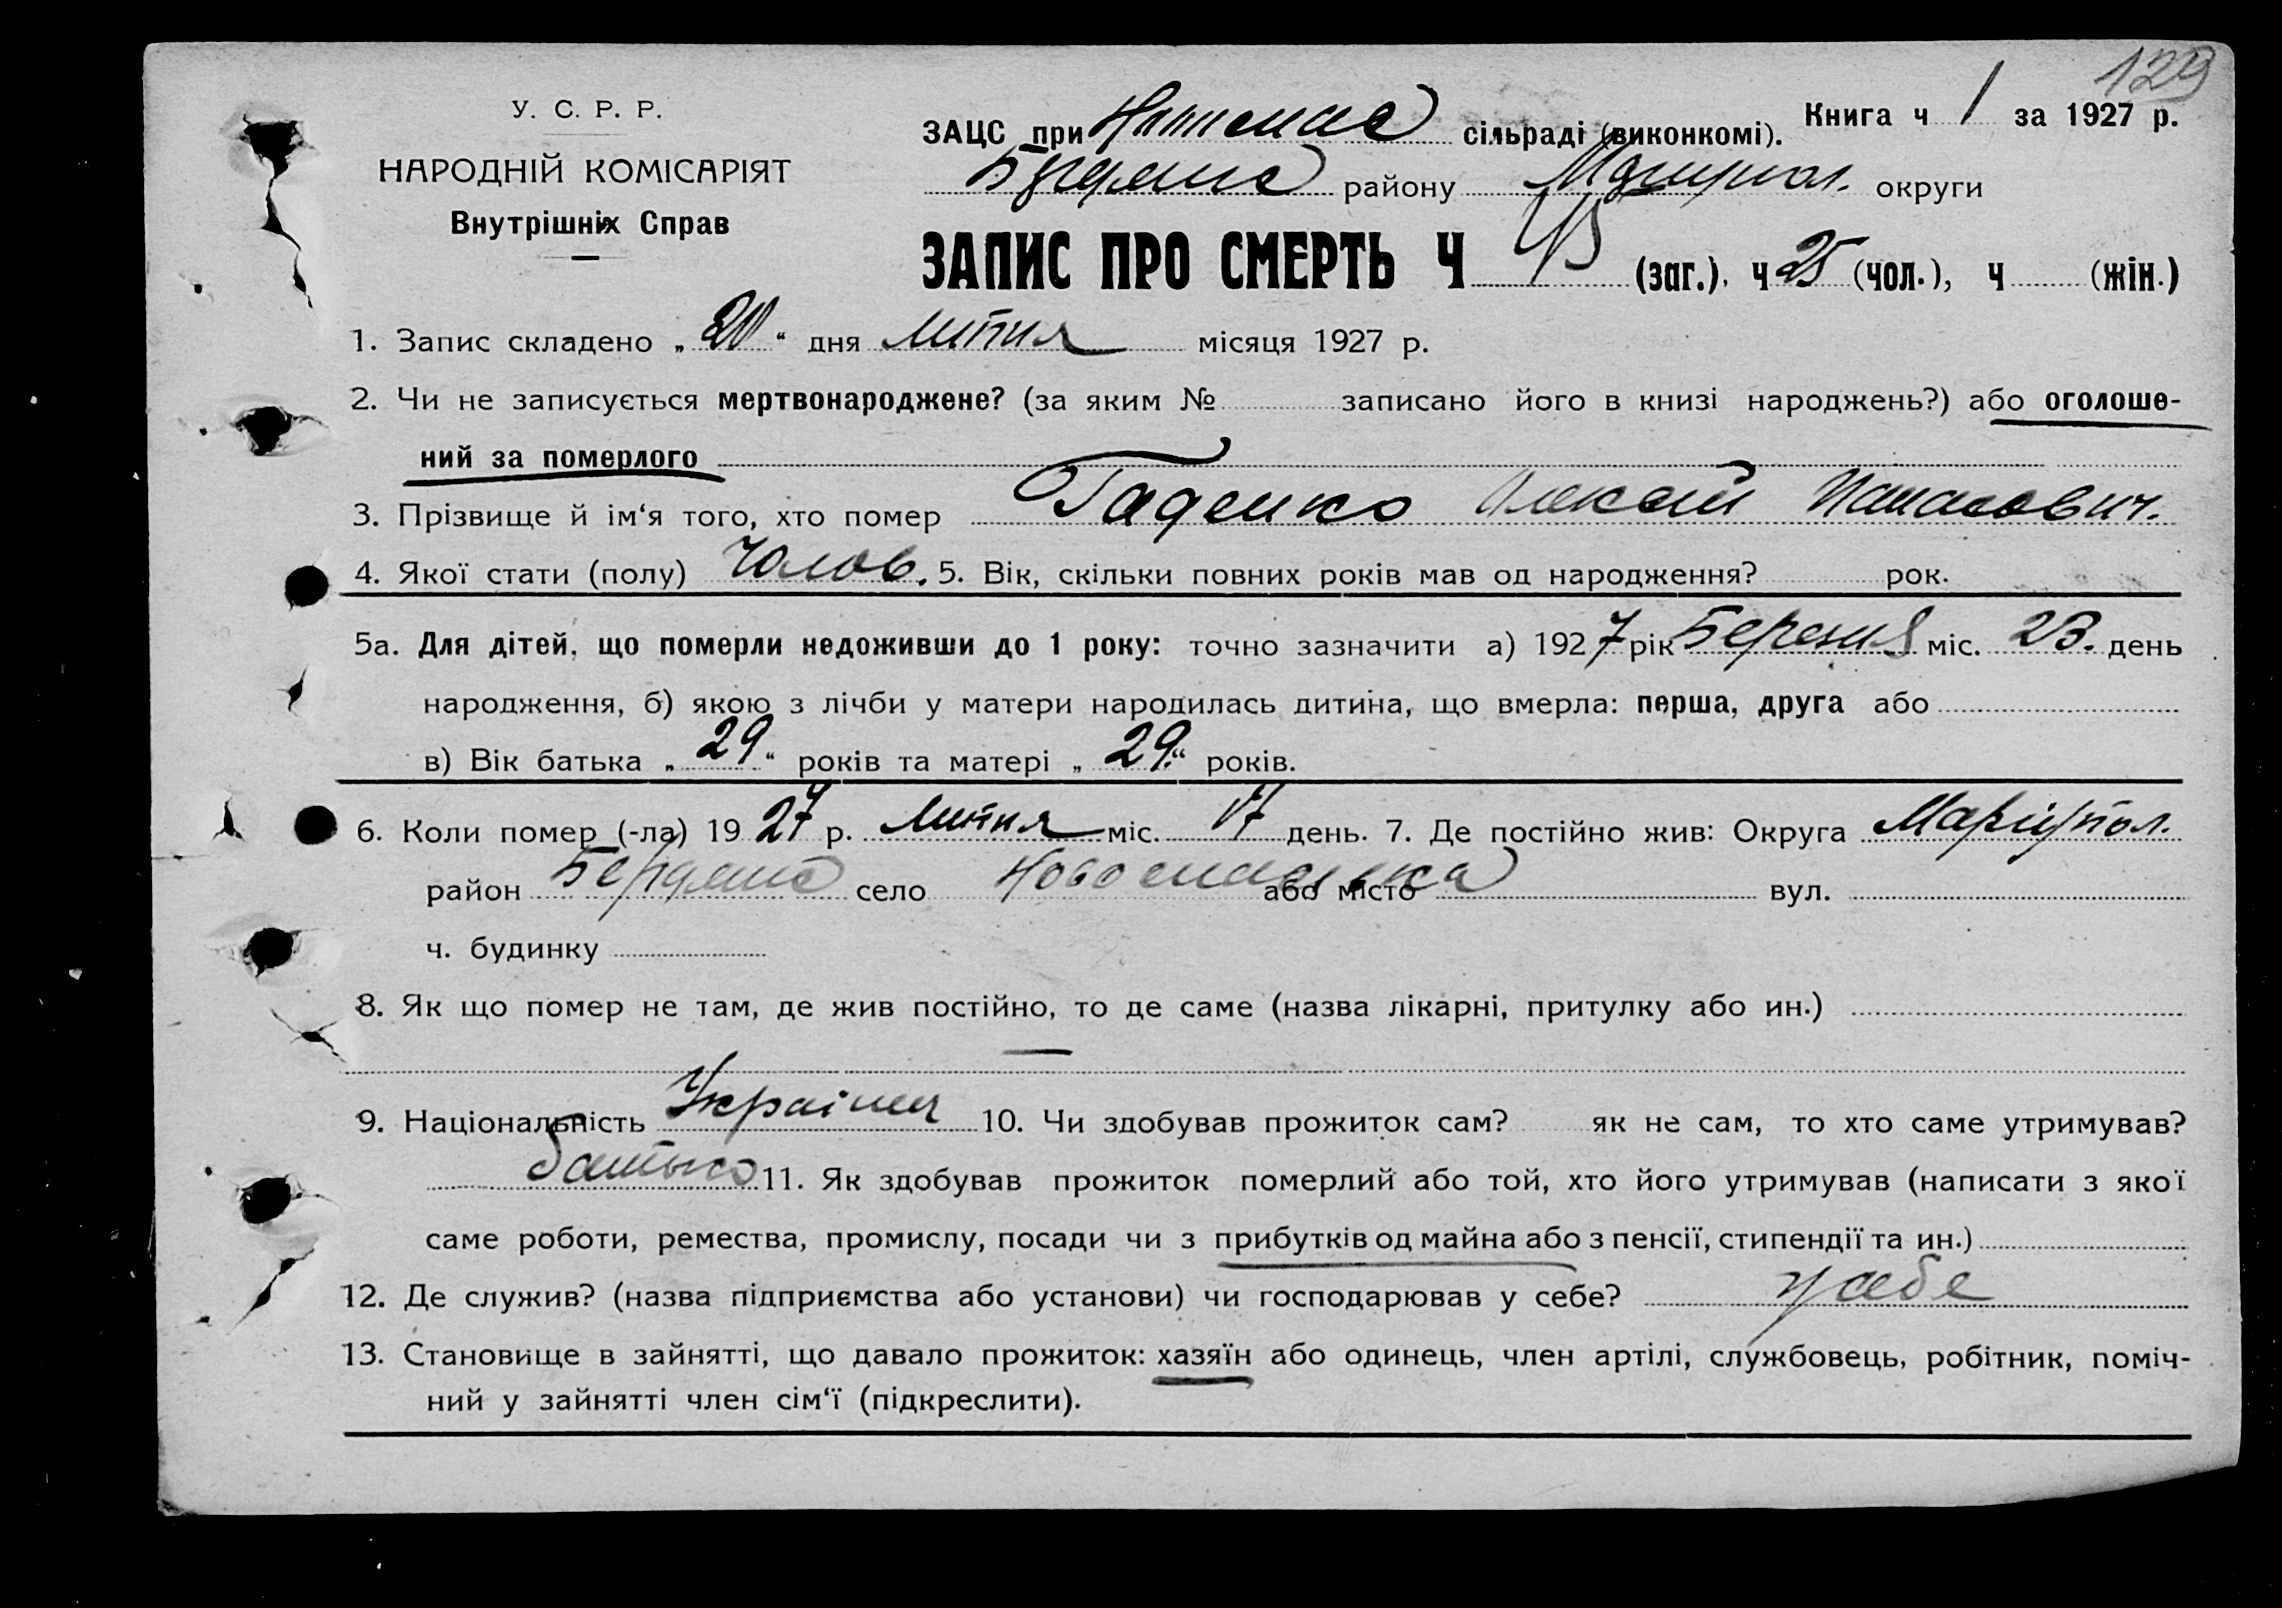 129
У. С. Р. Р.
НАРОДНІЙ КОМІСАРІЯТ
Внутрішніх Справ
ЗАЦС при сільраді (виконкомі). Книга ч 1 за 1927 р.
району Маріупол. округи
ЗАПИС ПРО СМЕРТЬ Ч (заг.), ч 25 (чол.), ч (жін.)
1. Запис складено „20“ дня липня місяця 1927 р.
2. Чи не записується мертвонароджене? (за яким № записано його в книзі народжень?) або оголоше-
ний за померлого
3. Прізвище й ім‘я того, хто помер Гаденко Олексій
4. Якої стати (полу) Чолов. 5. Вік, скільки повних років мав од народження? рок.
5а. Для дітей, що померли недоживши до 1 року: точно зазначити а) 1927 рік Березня міс. 23. день
народження, б) якою з лічби у матери народилась дитина, що вмерла: перша, друга або
в) Вік батька „29“ років та матері „29.“ років.
6. Коли помер (-ла) 1927 р. липня міс. 17 день. 7. Де постійно жив: Округа Маріупол.
район Бердянс село Новоспаська або місто вул.
ч. будинку
8. Як що помер не там, де жив постійно, то де саме (назва лікарні, притулку або ин.)
—
9. Національність Українец 10. Чи здобував прожиток сам? як не сам, то хто саме утримував?
батько 11. Як здобував прожиток померлий або той, хто його утримував (написати з якої
саме роботи, ремества, промислу, посади чи з прибутків од майна або з пенсії, стипендії та ин.)
12. Де служив? (назва підприємства або установи) чи господарював у себе? у себе
13. Становище в зайнятті, що давало прожиток: хазяїн або одинець, член артілі, службовець, робітник, поміч-
ний у зайнятті член сім‘ї (підкреслити).